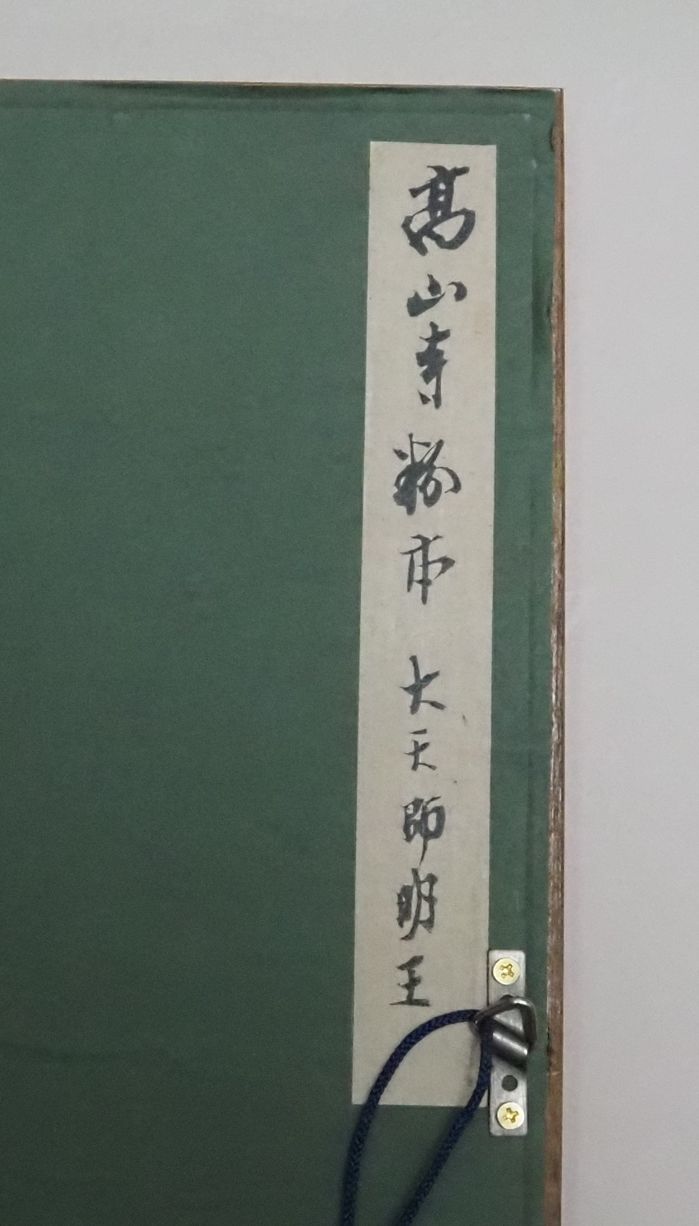 高山寺粉本 大天師明王